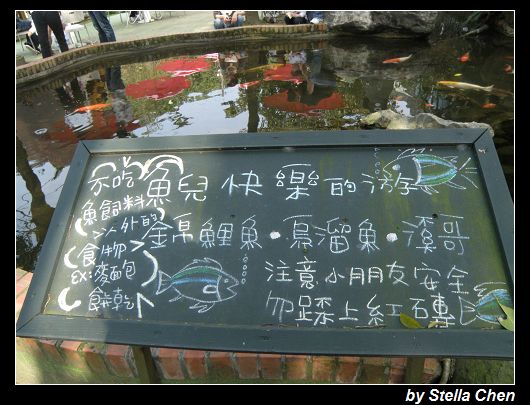 魚兒快樂的游
錦鯉魚・烏溜魚・哥
注意小朋友安全
勿踩上紅磚
(不吃
魚飼料
以外的
食物
EX:麵包
餅乾)
by Stella Chen